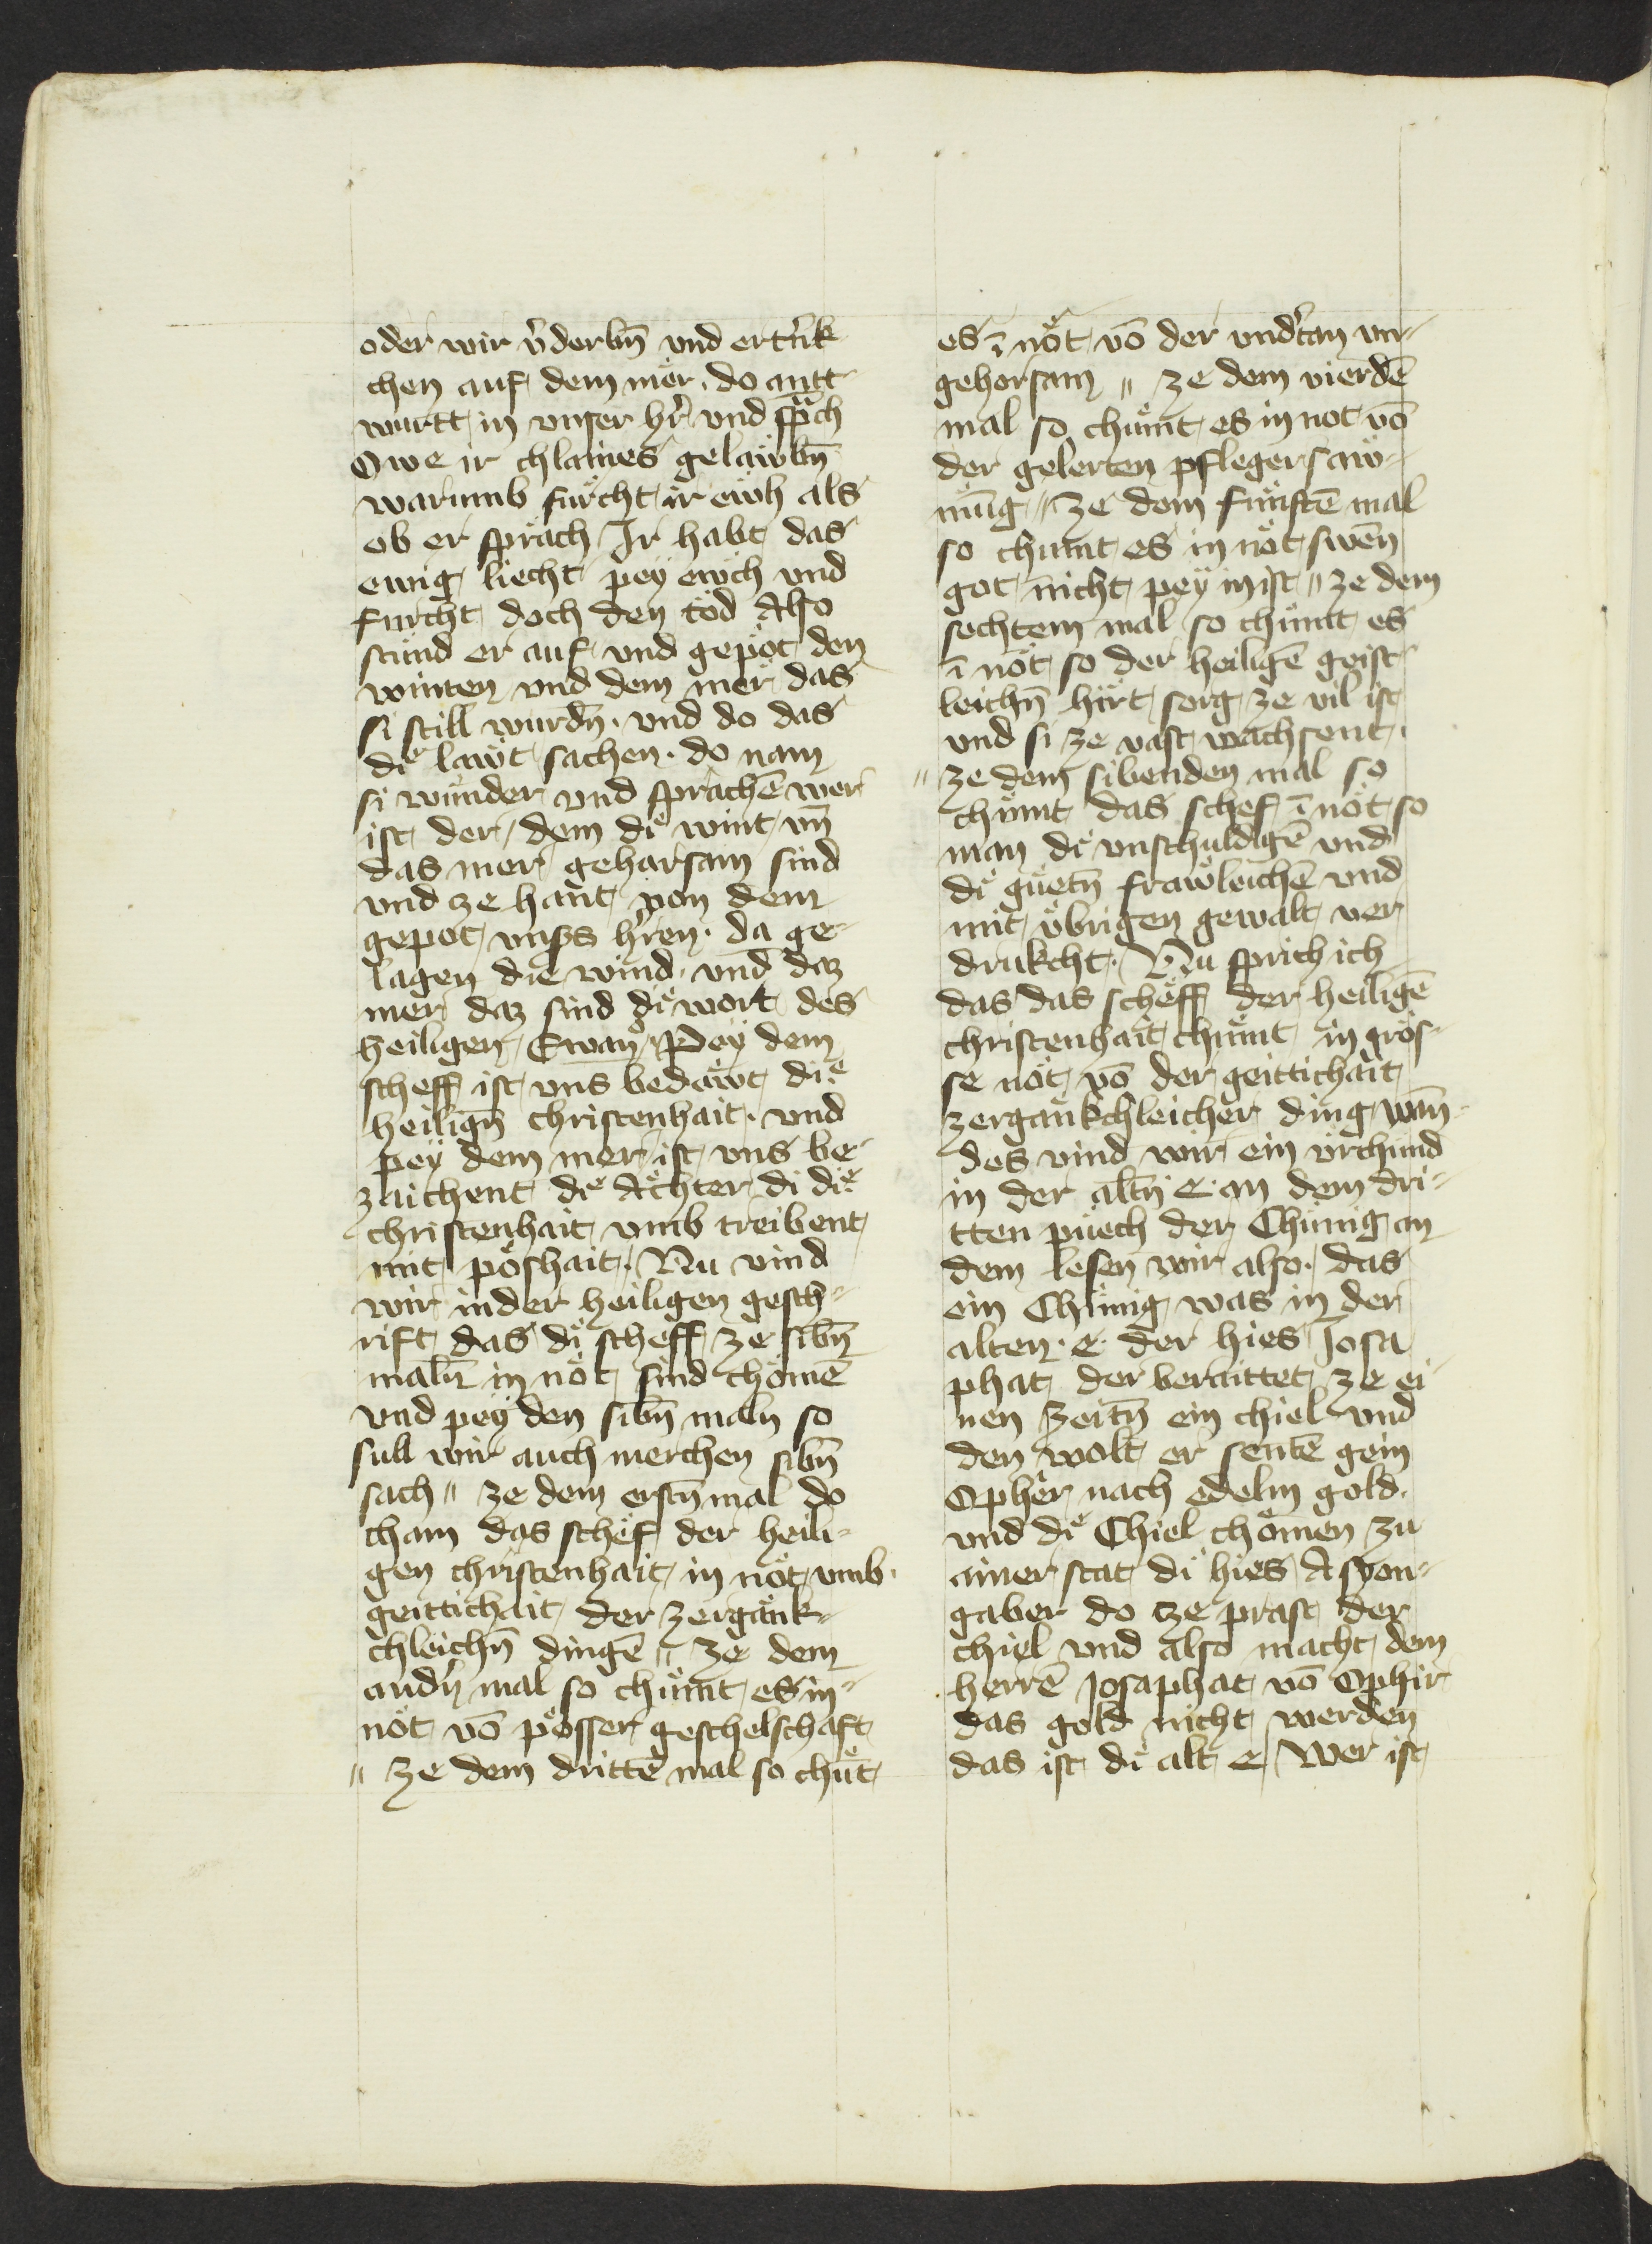 oder wir v̾derbn̄ vnd ertr̾ik
chen auf dem mer. do antt
wurtt in vnser hr̾ vnd sp̄ch
Owe ir chlaines gelaẅbn̄
warumb fürcht ir eẅh als
ob er spräch Ir habt das
ewig liecht peÿ ewch vnd
furcht doch den töd Also
stünd er auf vnd gepöt den
winten vnd dem mer das
si still wurdn̄. vnd do das
dÿ laẅt sachen. do nam
si wunder vnd sprachē wer
ist der dem di wint vn̄
das mer geharsam sind
vnd ze hant von dem
gepot vnsˢs hr̾ren. da ge-
lagen die wind. vnd daz
mer daz sind di wort des
heiligen Ewan̾ Peÿ dem
scheff ist vns bedaẅt die
heilign̄ christenhait. vnd
peÿ dem mer ist vns be-
zaichent di Ächter di die
christenhait vmb treibent
mit poshait. Nu vind
wir in der heiligen gesch-
rift das di scheff ze sibn̄
maln̄ in nöt sind chömē
vnd peÿ den sibn̄ maln so
sull wir auch merchen sibn̄
sach " ze dem erstn̄ mal do
cham das schef der heili-
gen christenhait in nöt vmb
geittichait der zergänk-
chleichn̄ dingē " ze dem
andn̾ mal so chümt es in
nöt vō pösser geschelschaft
" ze dem drittē mal so chüt
es ī nöt vō der vndt̾an vn-
gehorsam " ze dem vierdē
mal so chümt es in not vō
der gelerten pfleger saẅ-
nūng " ze dem fünftē mal
so chumt es in nöt swēn
got nicht peÿ in ist " ze dem
sechtem mal so chümt es
ī nöt so der heiligē geist-
leichn̄ hirt sorg ze vil ist
vnd si ze vast wachsent.
" ze dem sibenden mal so
chümt das schef ī nöt so
man di vnschuldigē vnd
di güetn̄ fraẅleichē vnd
mit übrigen gewalt ver
drukcht. Nu sprich ich
das das scheff der heiligē
christenhait chümt in grös-
se nöt vō der geittichait
zergänkchleicher ding wan̄
des vind wir ein vrchünd
in der altn̄ e. an dem dri-
tten püech der Chünig an
dem lesen wir also. das
ein Chünig was in der
alten. e. der hies Josa
phat der beraittet ze ei
nen zeitn̄ ein chiel vnd
den wolt er sentē gein
Opher nach edelm gold.
vnd di Chiel chömen zu
ainer stat di hies Asyon-
gaber do ze prast der
chiel vnd also macht dem
herrē Josaphat vō Ophir
das gold nicht werden
das ist di alt e Wer ist